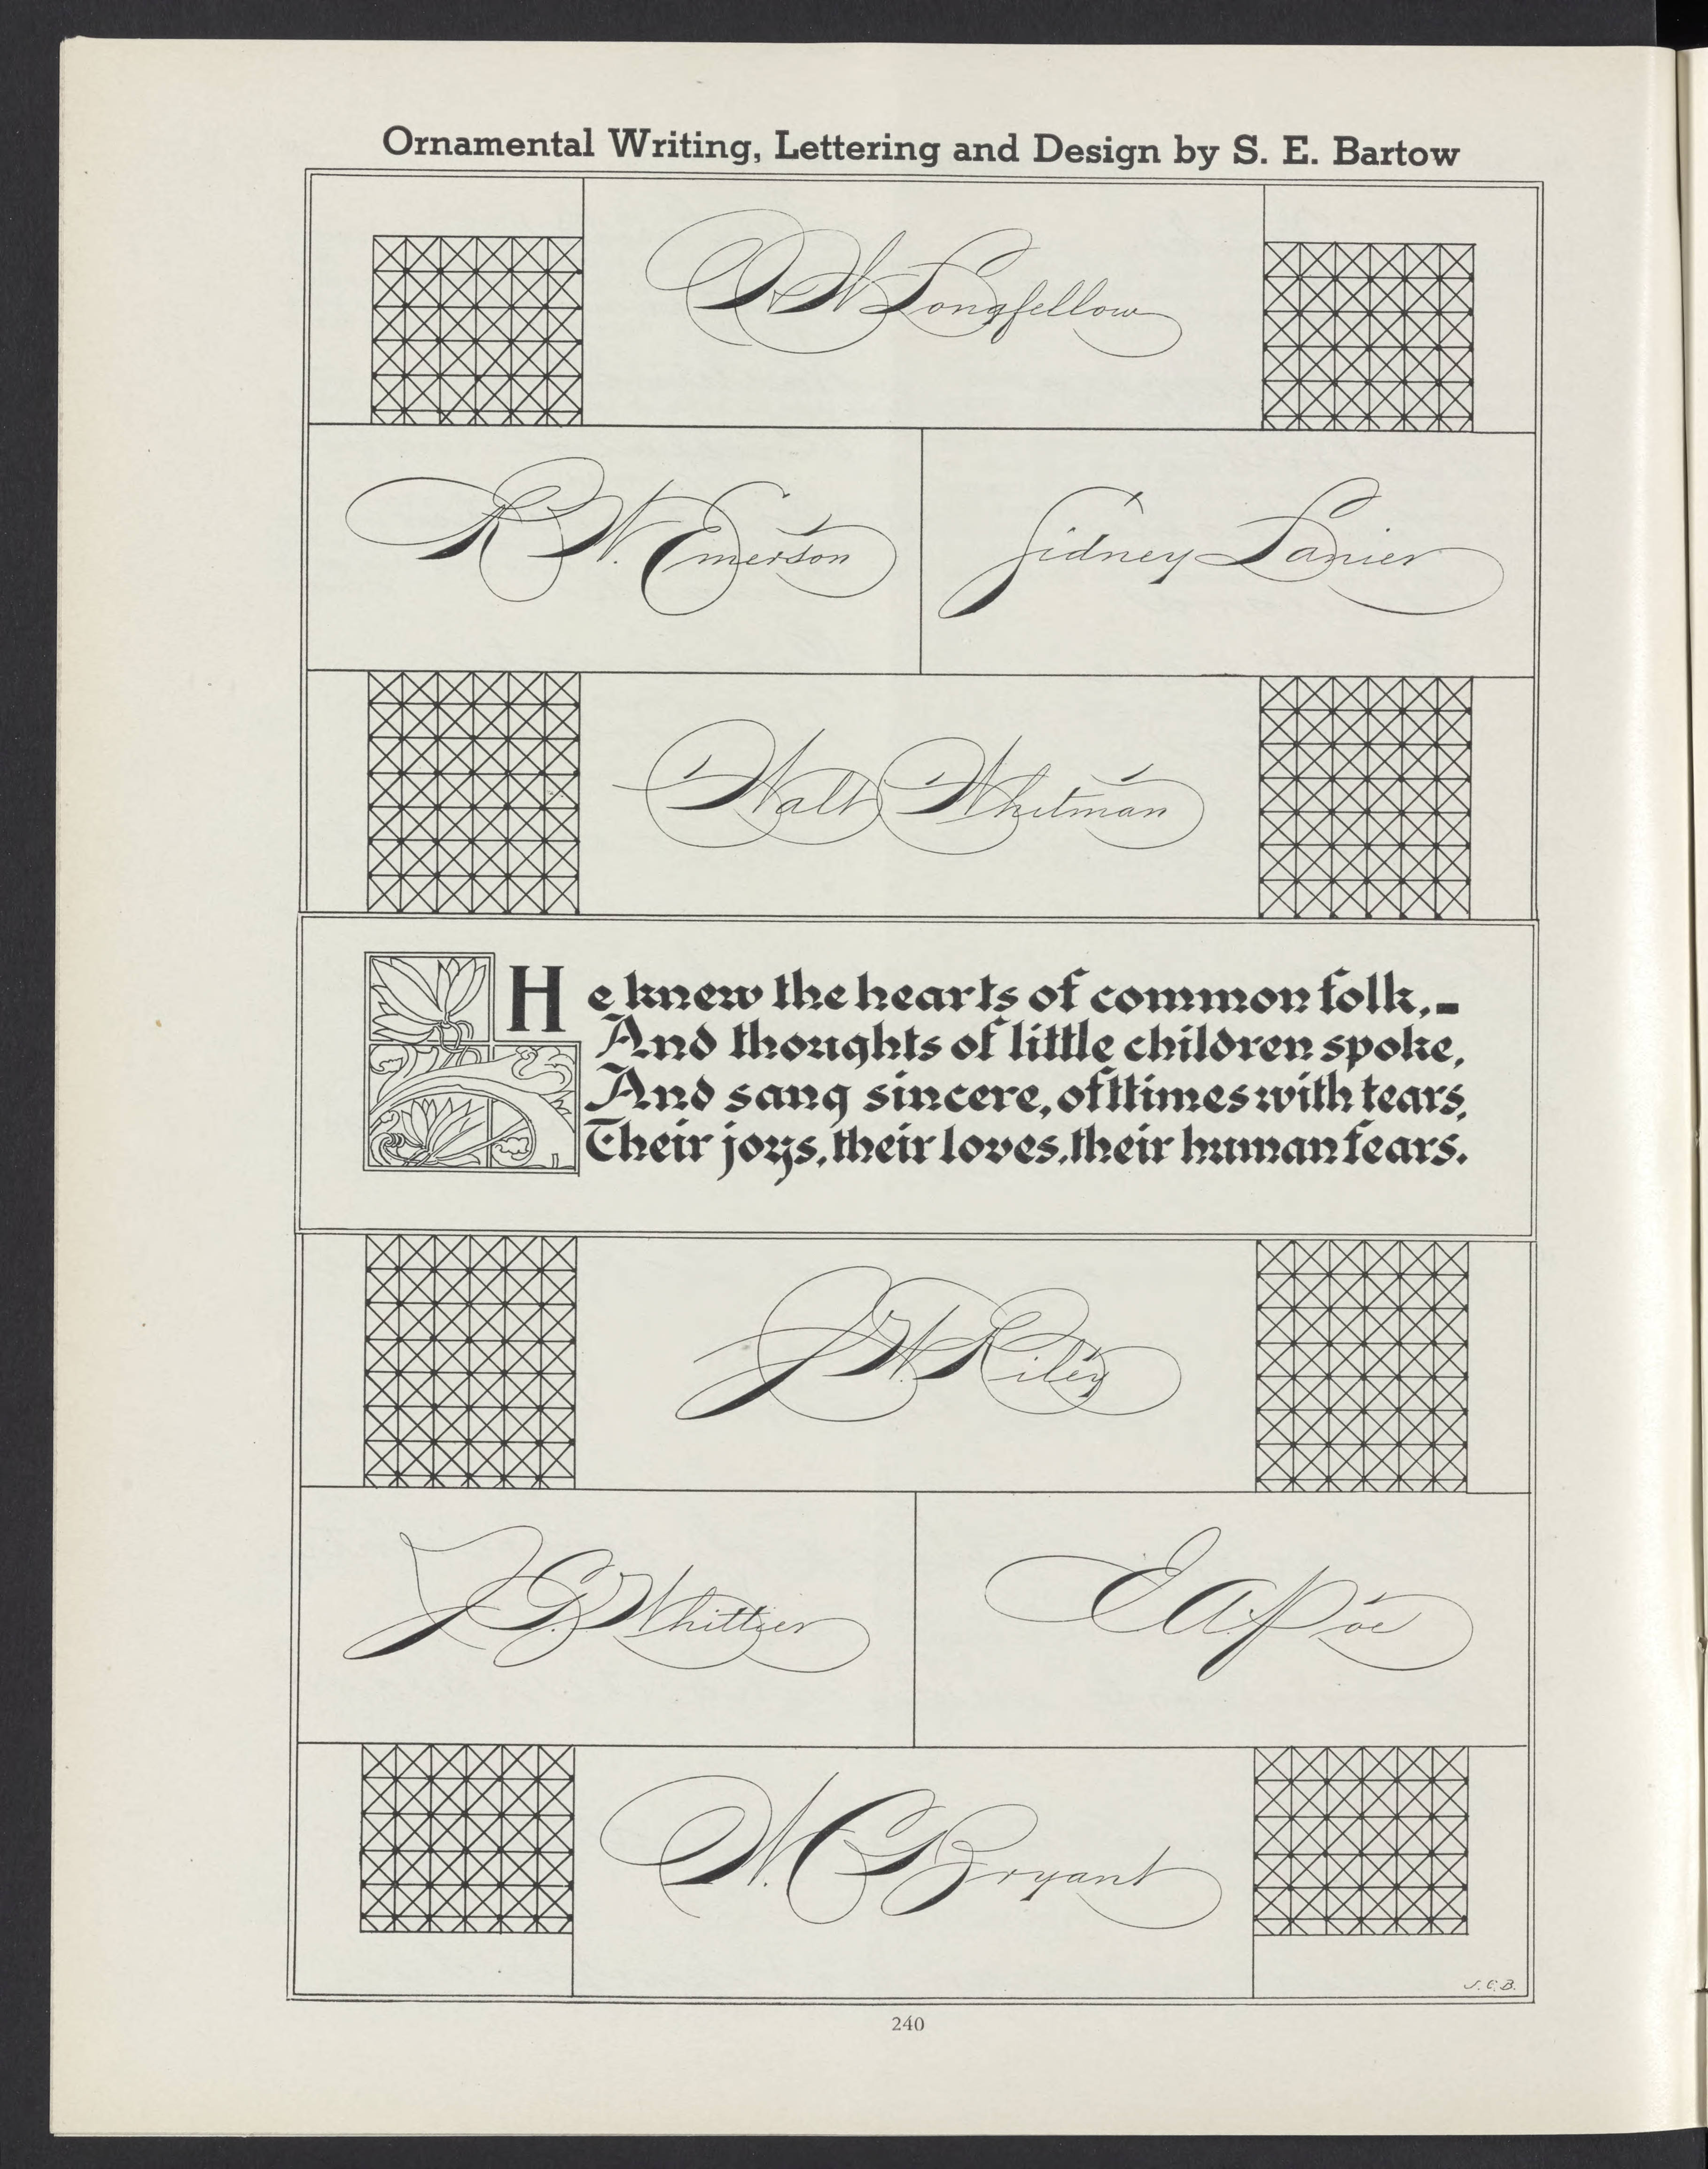 Ornamental Writing, Lettering and Design by S. E. Bartow
H W Longfellow
R W. Emerson
Sidney Lanier
Walt Whitman
He knew the hearts of common folk,-
And thoughts of little children spoke,
And sang sincere, ofttimes with tears,
Their joys, their loves, their human fears.
J W. Riley
J G. Whittier
E A. Poe
W. C Bryant
S. E. B.
240